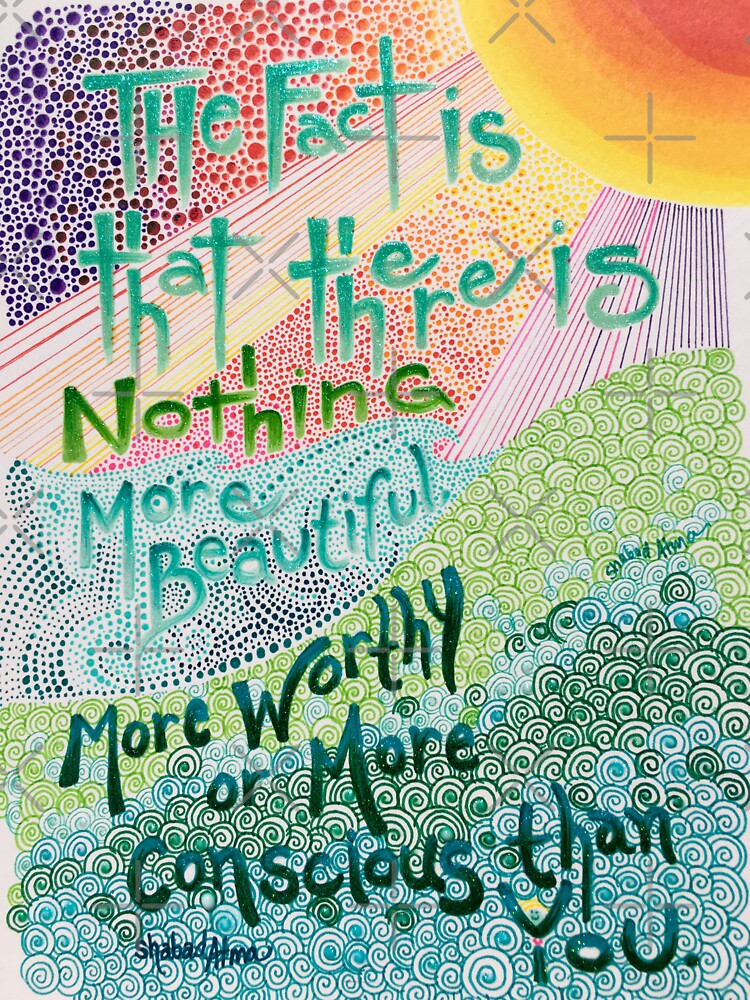 The Fact is
that there is
Nothing
More
Beautiful
shabad Atma
More Worthy
or More
Conscious than
You.
shabad Atma